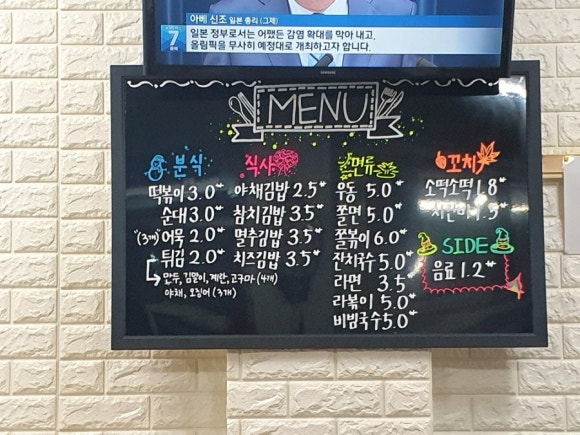 아베 신조 일본 총리 (그제)
일본 정부로서는 어쨌든 감염 확대를 막아 내고,
올림픽을 무사히 예정대로 개최하고자 합니다.
7
SAMSUNG
MENU
분식
떡볶이 3.0
순대 3.0
(3개) 어묵 2.0
튀김 2.0
만두, 김말이, 계란, 고구마 (4개)
야채, 오징어 (3개)
식사
야채김밥 2.5
참치김밥 3.5
멸추김밥 3.5
치즈김밥 3.5
면류
우동 5.0
쫄면 5.0
쫄볶이 6.0
잔치국수 5.0
라면 3.5
라볶이 5.0
비빔국수 5.0
꼬치
소떡소떡 1.8
SIDE
음료 1.2